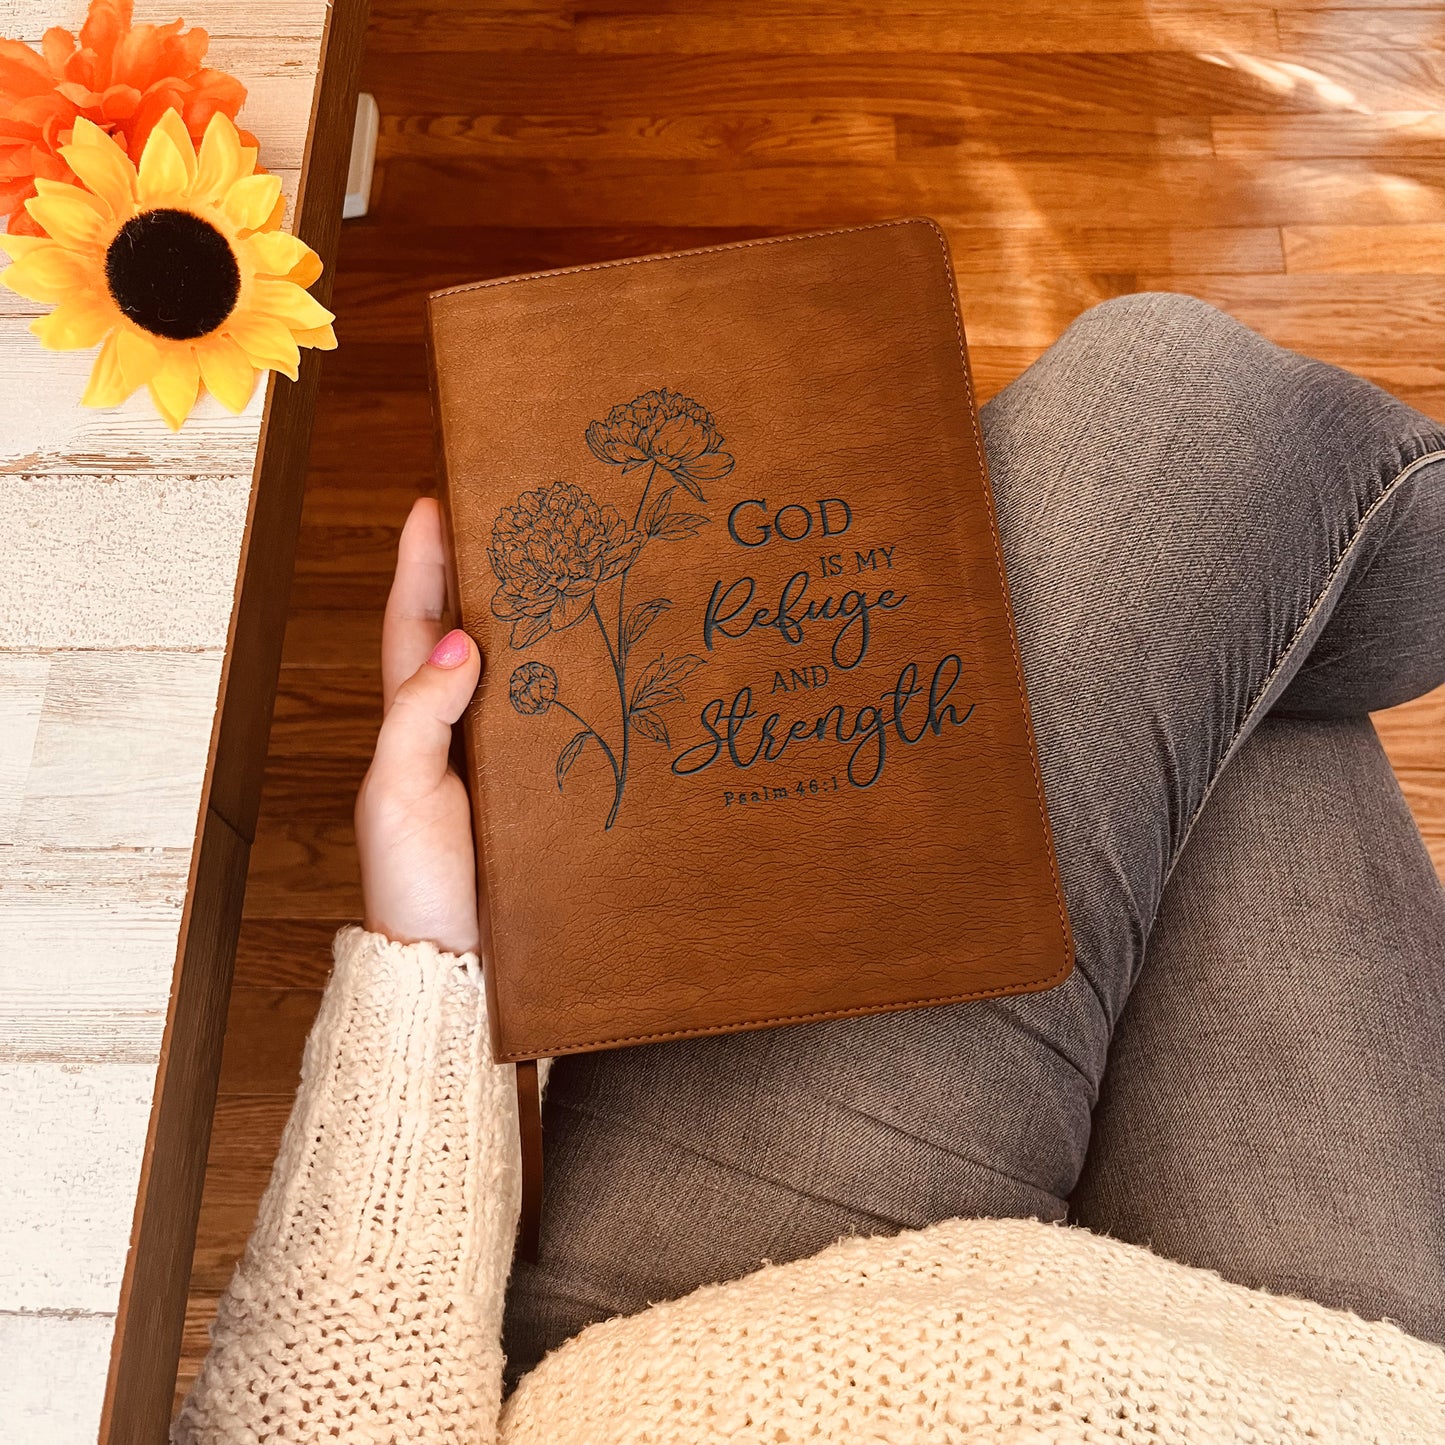 GOD
IS MY
Refuge
AND
Strength
Psalm 46:1